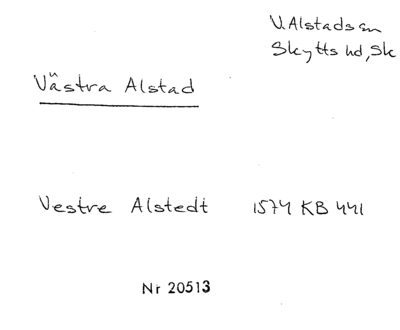 V. Alstads sn
Skytts hd, Sk
Västra Alstad
Vestre Alstedt 1574 KB 441
Nr 20513